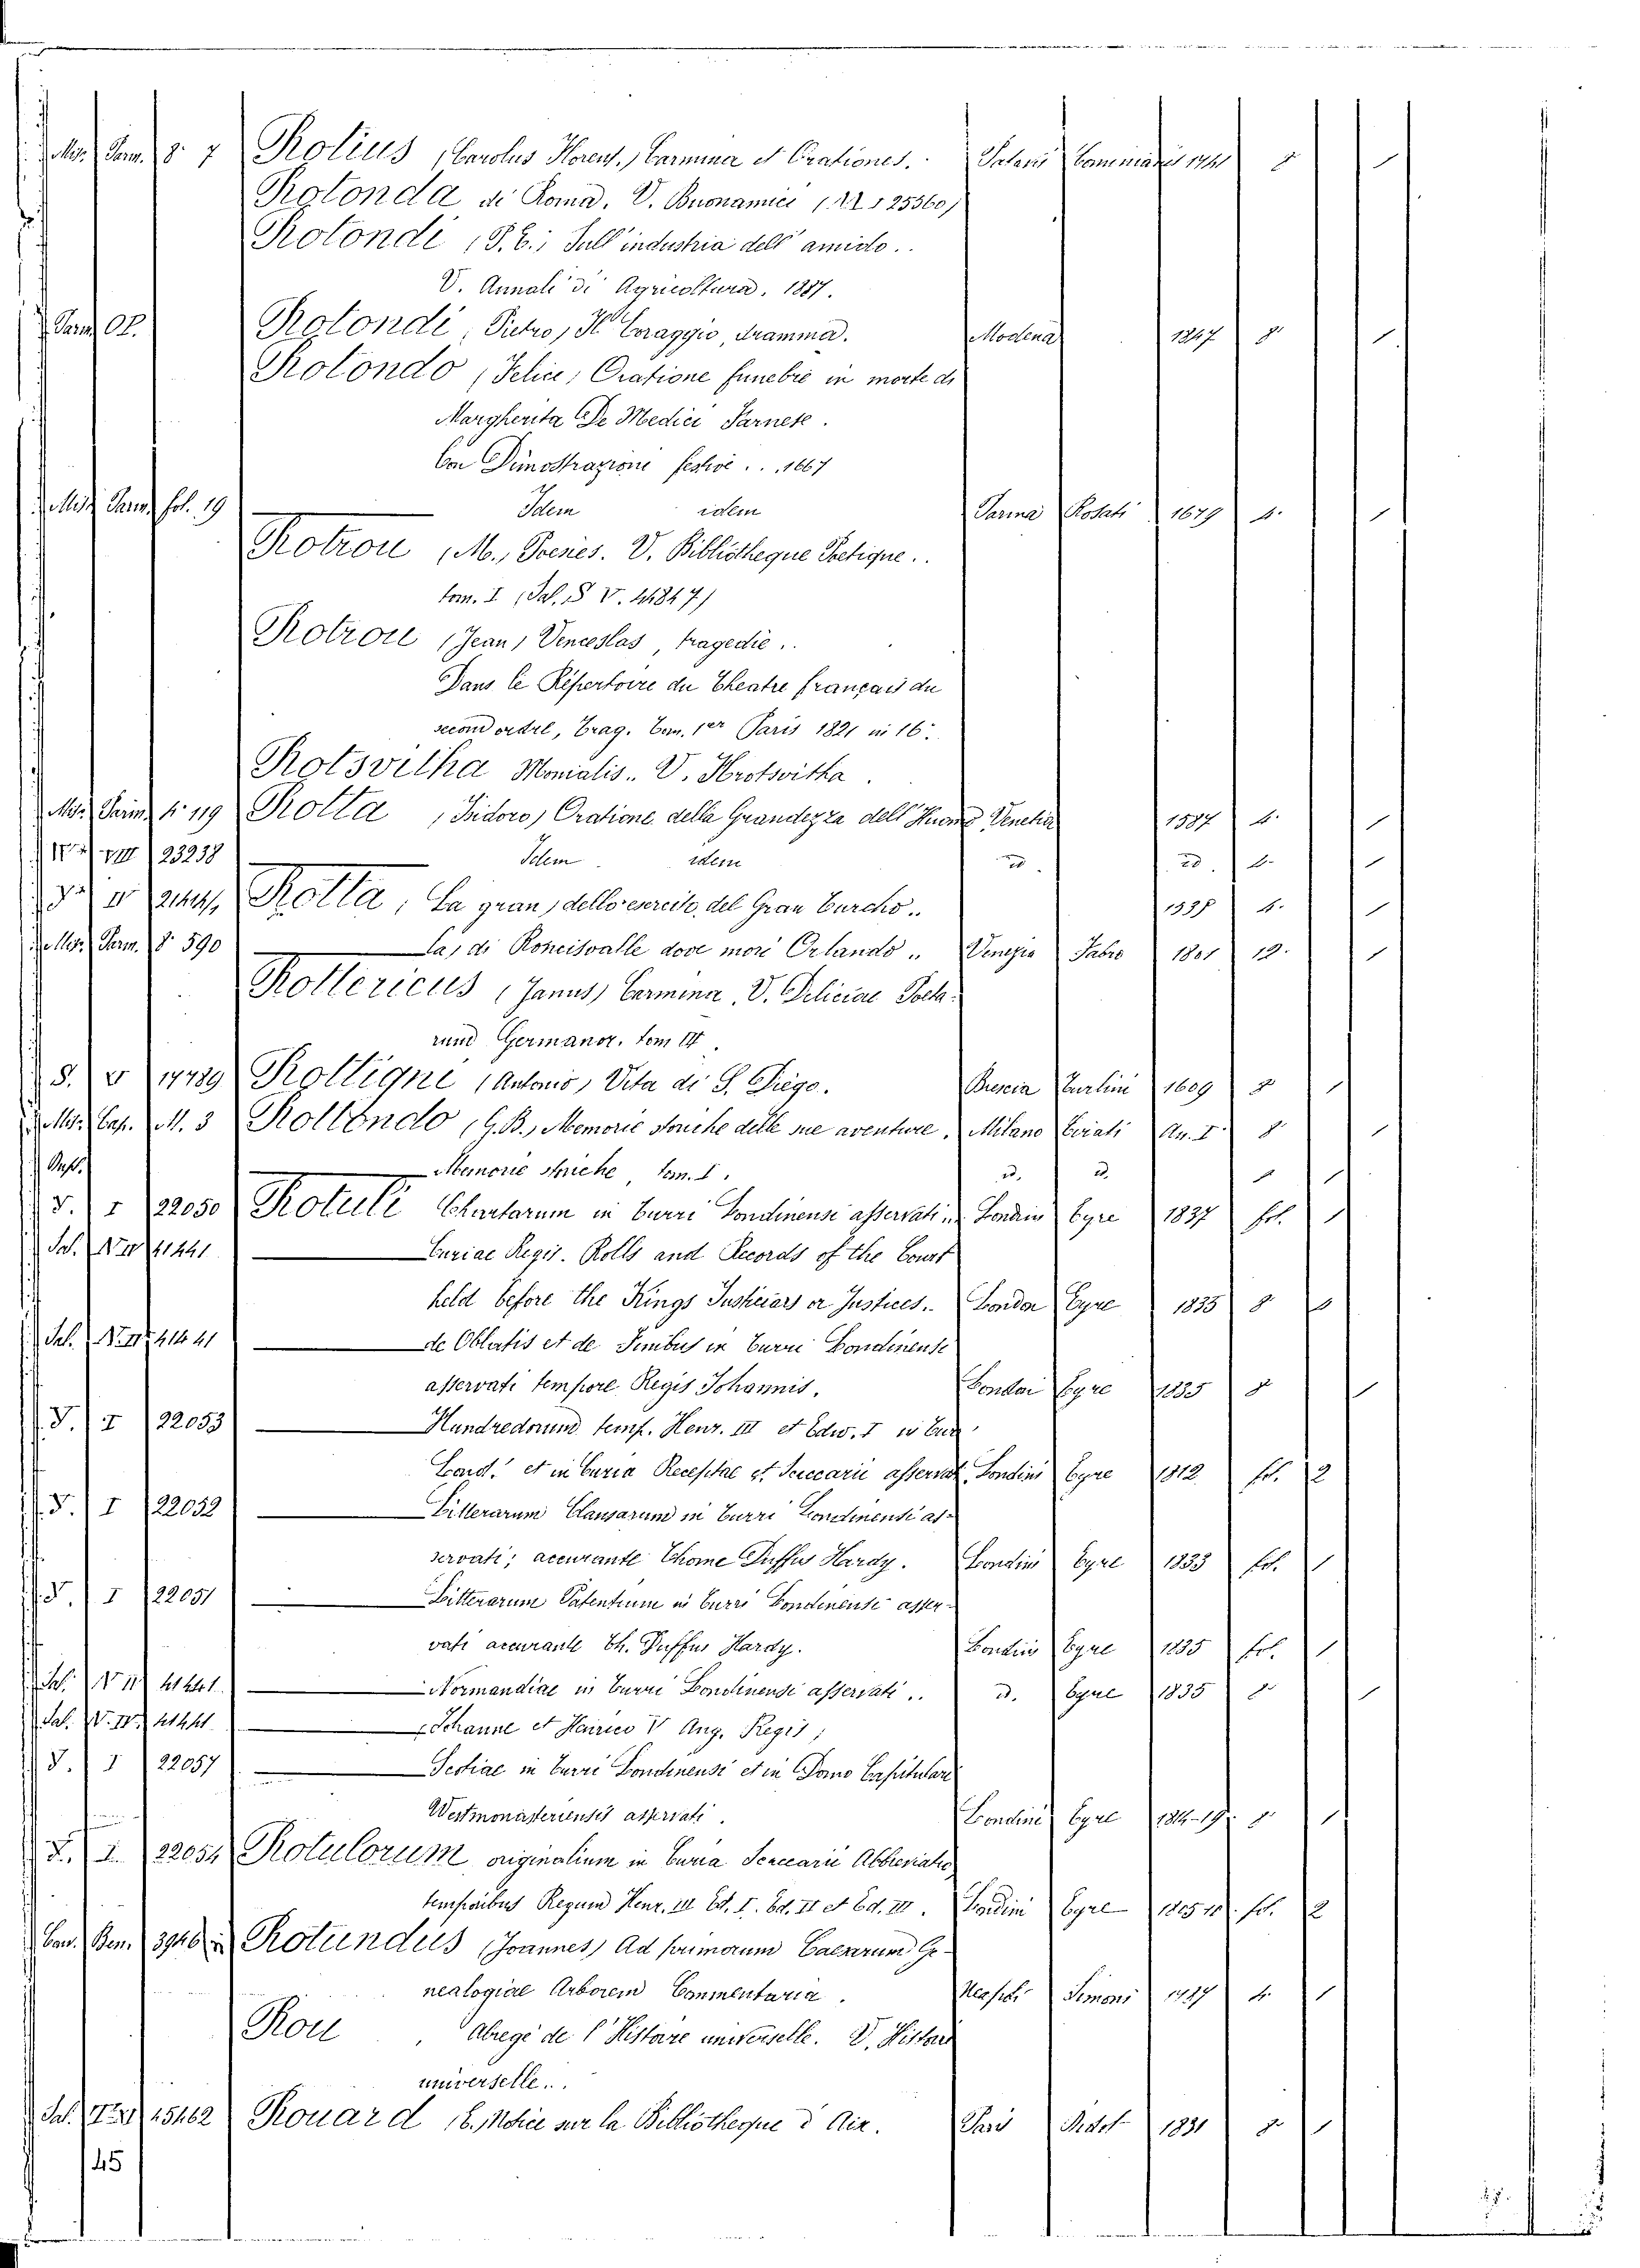 Misc. Parm. 8° 7 Rotius (Carolus Horent.) Carmina et Orationes. Patavii 8
Rotonda di Roma. V. Buonamici 25360)
Rotondi (P. E.) Sull' industria dell' amido..
V. Annali di Agricoltura. 1887.
Parm. Rotondi (Pietro) Il Coraggio, dramma. Modena 1847 8° 1
Rotondo (Felice) Oratione funebre in morte di
Margherita De Medici Farnese.
Con Dimostrazioni festive... 1667
Misc. Parm. fol. 19 Idem idem Parma Rosati 1679 4° 1
Rotrou (M.) Poesies. V. Bibliotheque Poetique..
tom. I (Sal. 8 V. 41847)
Rotrou (Jean) Venceslas, tragedie..
Dans le Répertoire du Theatre français du
second ordre, Trag. Tom. 1er Paris 1821 in 16°.
Rotsvitha Monialis.. V. Hrotswitha.
Misc. Parm. 4° 119 Rotta (Isidoro) Oratione della Grandezza dell' Huomo Venetia 1587 4° 1
VIII 23238 Idem idem id. id. 4° 1
Rotta, La gran, dello exercito del Gran Turcho.. 4° 1
Misc. Parm. 8° 590 La, di Roncisvalle dove morì Orlando.. Venezia Fabro 1801 12° 1
Rottericus (Janus) Carmina. V. Deliciae Poeta-
rum Germanor. tom IV.
S. V 14489 Rottigni (Antonio) Vita di S. Diego. Brescia Turlini 1609 8° 1
Misc. Cas. M. 3 Rottondo (G.B.) Memorie storiche delle sue aventure. Milano Cerati An. I 8° 1
Memorie storiche, tom. I. id. id. 1
S. I 22050 Rotuli Chartarum in Turri Londinensi asservati.. Londini Eyre 1837 fol. 1
Sal. 41441 Curiae Regis. Rolls and Records of the Court
held before the Kings Justiciars or Justices.. London Eyre 1835 8°
Sal. 41441 de Oblatis et de Finibus in Turri Londinensi
asservati tempore Regis Johannis. London Eyre 1835 8° 1
S. I 22053 Hundredorum temp. Henr. III et Edw. I in Turr
Lond. et in Curia Receptae et Scaccarii asservat. Londini Eyre 1812 fol. 2
S. I 22052 Litterarum Clausarum in Turri Londinensi as-
servati; accurante Thome Duffus Hardy. Londini Eyre 1833 fol. 1
S. I 22051 Litterarum Patentium in Turri Londinensi asser-
vati accurante Th. Duffus Hardy. Londini Eyre 1835 fol. 1
Sal. 41441 Normandiae in Turri Londinensi asservati.. id. Eyre 1835 8° 1
Sal. 41441 Johanne et Henrico V Ang. Regis;
S. I 22057 Scotiae in Turri Londinensi et in Domo Capitulari
Westmonasteriensis asservati. Londini Eyre 1814-19 1
S. I 22054 Rotulorum originalium in Curia Scaccarii Abbreviatio
temporibus Regum Henr. III Ed. I. Ed. II et Ed. III. Londini Eyre 1805 10 fol. 2
3946 Rotundus (Joannes) Ad primorum Caesarum Ge-
nealogiae Arborem Commentaria. Neapoli Simoni 4° 1
Rou Abregé de l'Histoire universelle. V. Histoire
universelle..
Sal. 45462 Rouard (E.) Notice sur la Bibliotheque d'Aix. Paris Didot 1831 8° 1
45